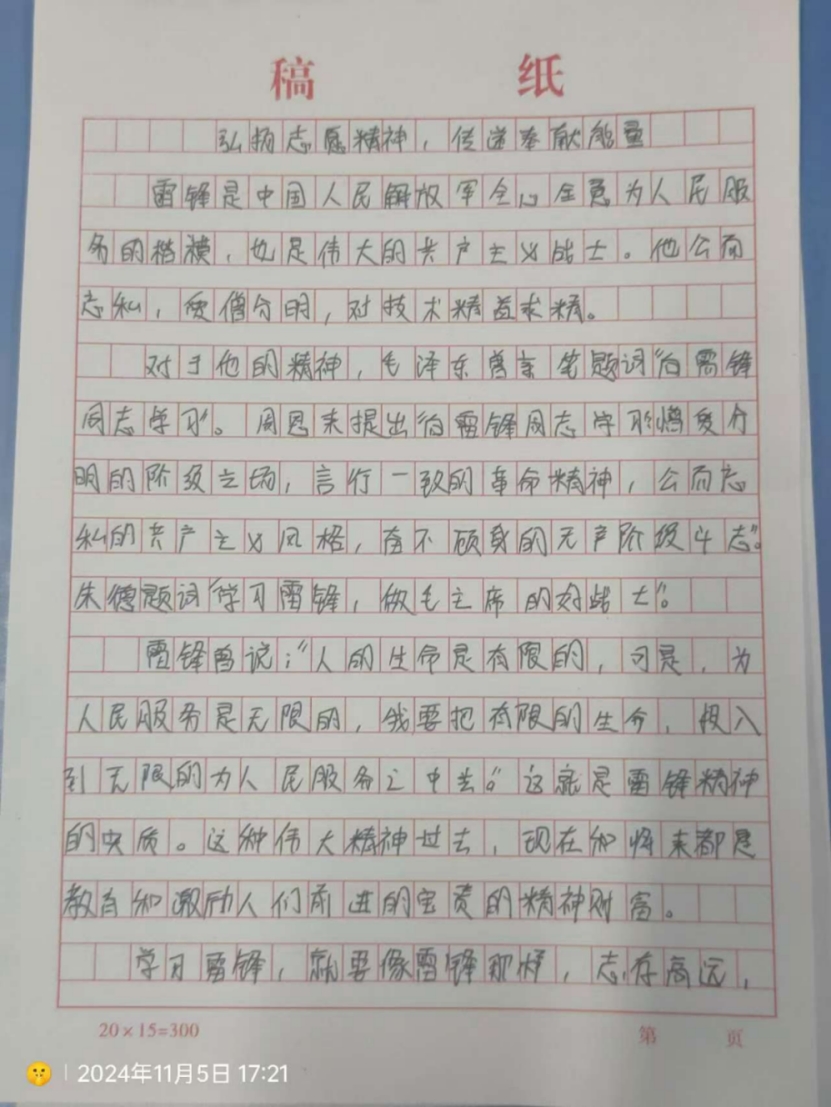 稿 纸
弘扬志愿精神，传递奉献能量
雷锋是中国人民解放军全心全意为人民服
务的楷模，也是伟大的共产主义战士。他公而
忘私，爱憎分明，对技术精益求精。
对于他的精神，毛泽东曾亲笔题词“向雷锋
同志学习”。周恩来提出“向雷锋同志学习憎爱分
明的阶级立场，言行一致的革命精神，公而忘
私的共产主义风格，奋不顾身的无产阶级斗志”。
朱德题词“学习雷锋，做毛主席的好战士”。
雷锋曾说：“人的生命是有限的，可是，为
人民服务是无限的，我要把有限的生命，投入
到无限的为人民服务之中去。”这就是雷锋精神
的实质。这种伟大精神过去，现在和将来都是
教育和激励人们前进的宝贵的精神财富。
学习雷锋，就要像雷锋那样，志存高远，
20×15=300 第 页
2024年11月5日 17:21